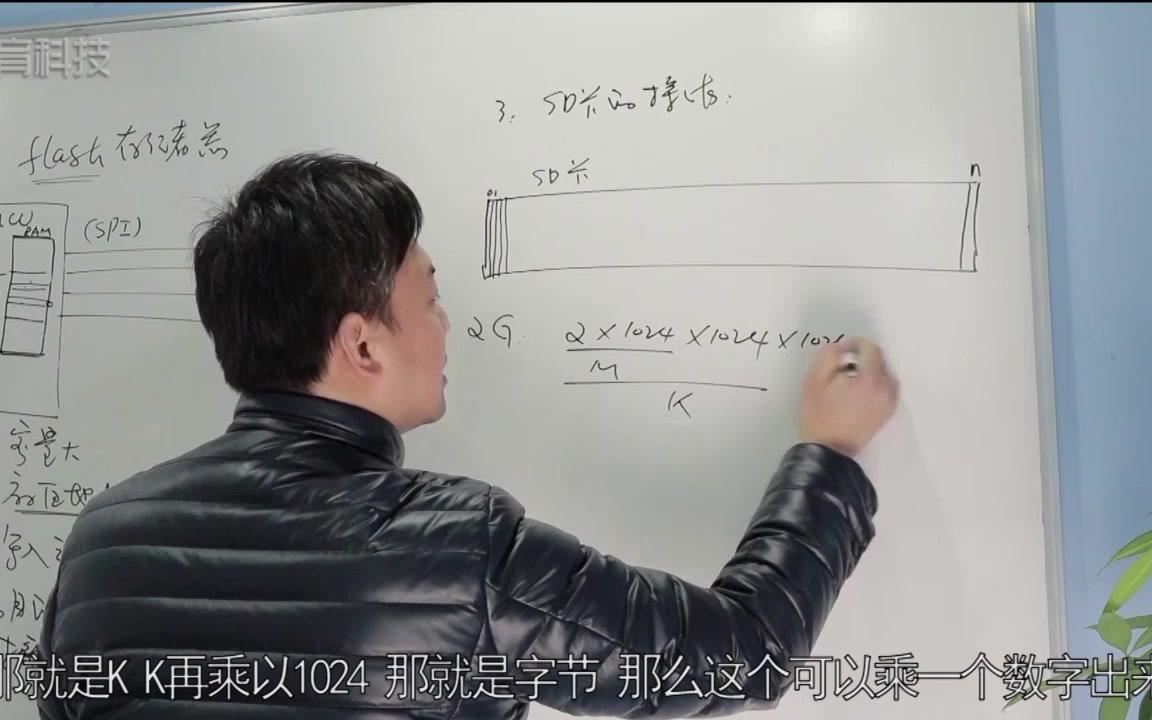 育科技
3. SD卡的接法:
flash 存储器
SD卡
0 1
n
RAM
(SPI)
2G: 2×1024×1024×102
M
K
容量大
写入
那就是K K再乘以1024 那就是字节 那么这个可以乘一个数字出来